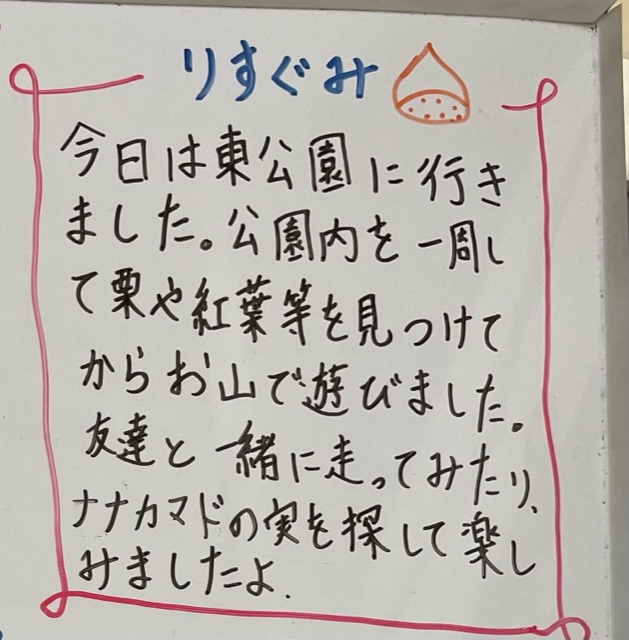 りすぐみ
今日は東公園に行き
ました。公園内を一周し
て栗や紅葉等を見つけて
からお山で遊びました。
友達と一緒に走ってみたり、
ナナカマドの実を探して楽し
みましたよ.